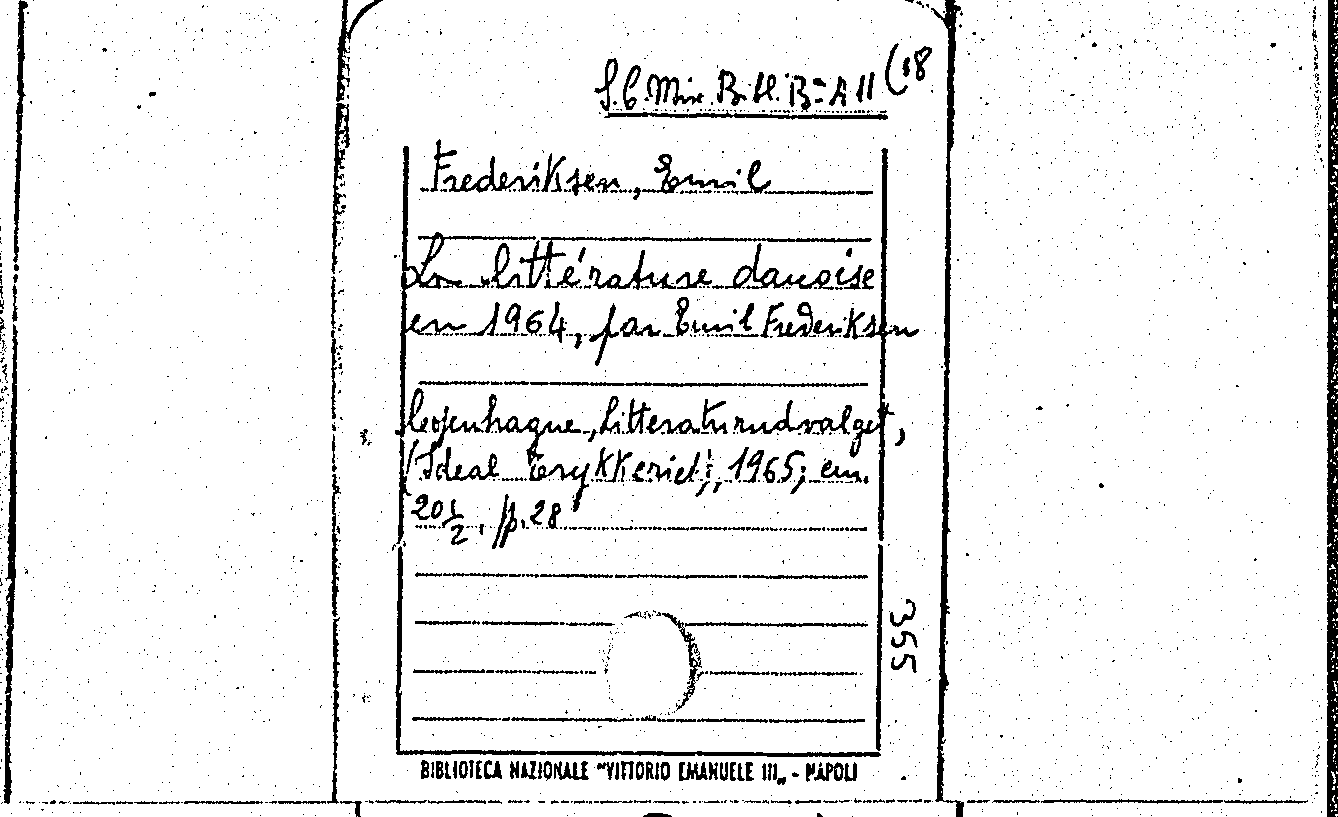 S.C. Mix. B. H. B= A 11 (18
Frederiksen, Emil
La littérature danoise
en 1964, par Emil Frederiksen
Copenhague, Litteraturudvalget,
(Ideal Trykkeriet), 1965; cm.
20 1/2. p. 28
355
BIBLIOTECA NAZIONALE "VITTORIO EMANUELE III„ - NAPOLI